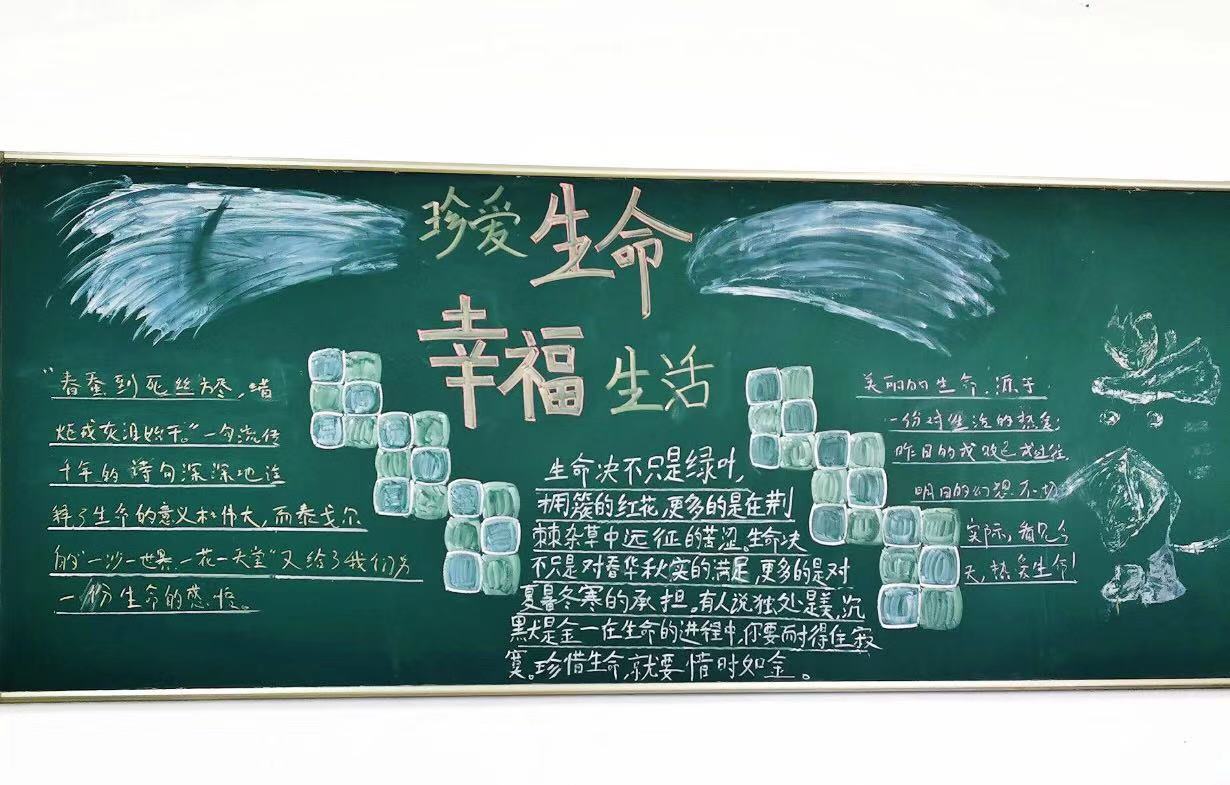 珍爱生命
幸福生活
"春蚕到死丝方尽,蜡
炬成灰泪始干。"一句流传
千年的诗句深深地诠
释了生命的意义和伟大,而泰戈尔
的"一沙一世界,一花一天堂"又给了我们另
一份生命的感悟。
生命决不只是绿叶,
拥簇的红花,更多的是在荆
棘杂草中远征的苦涩。生命决
不只是对春华秋实的满足,更多的是对
夏暑冬寒的承担。有人说独处是美,沉
默是金一在生命的进程中,你要耐得住寂
寞。珍惜生命,就要惜时如金。
美丽的生命,源于
一份对生活的热爱,
昨日的成败已成过往,
明日的幻想不切
实际,看见今
天,热爱生命!